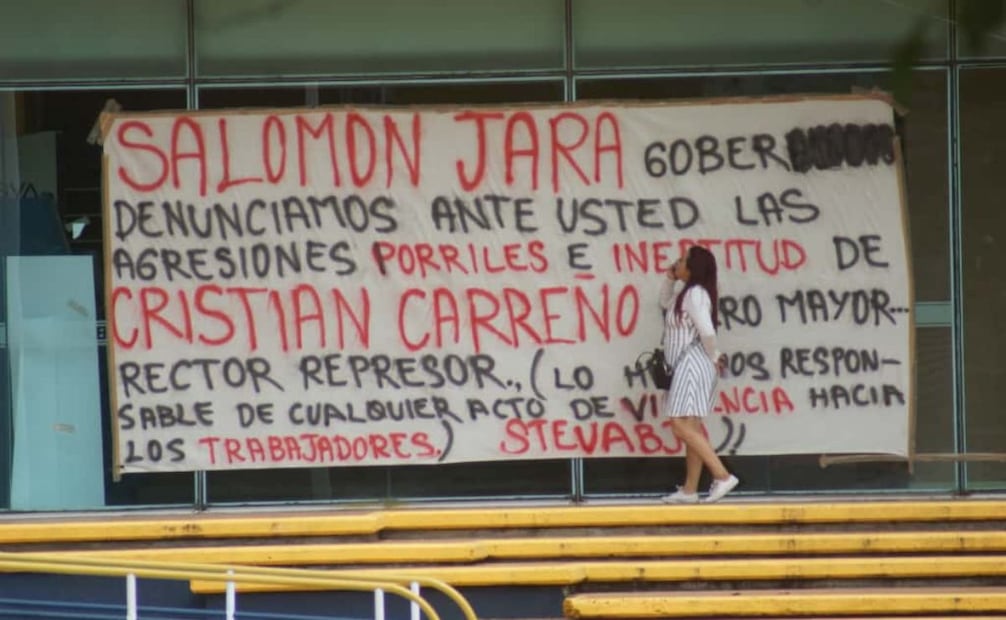 SALOMON JARA GOBER
DENUNCIAMOS ANTE USTED LAS
AGRESIONES PORRILES E INEPTITUD DE
CRISTIAN CARREÑO RO MAYOR...
RECTOR REPRESOR., (LO H OS RESPON-
SABLE DE CUALQUIER ACTO DE VI ENCIA HACIA
LOS TRABAJADORES.) STEVABJ )!!